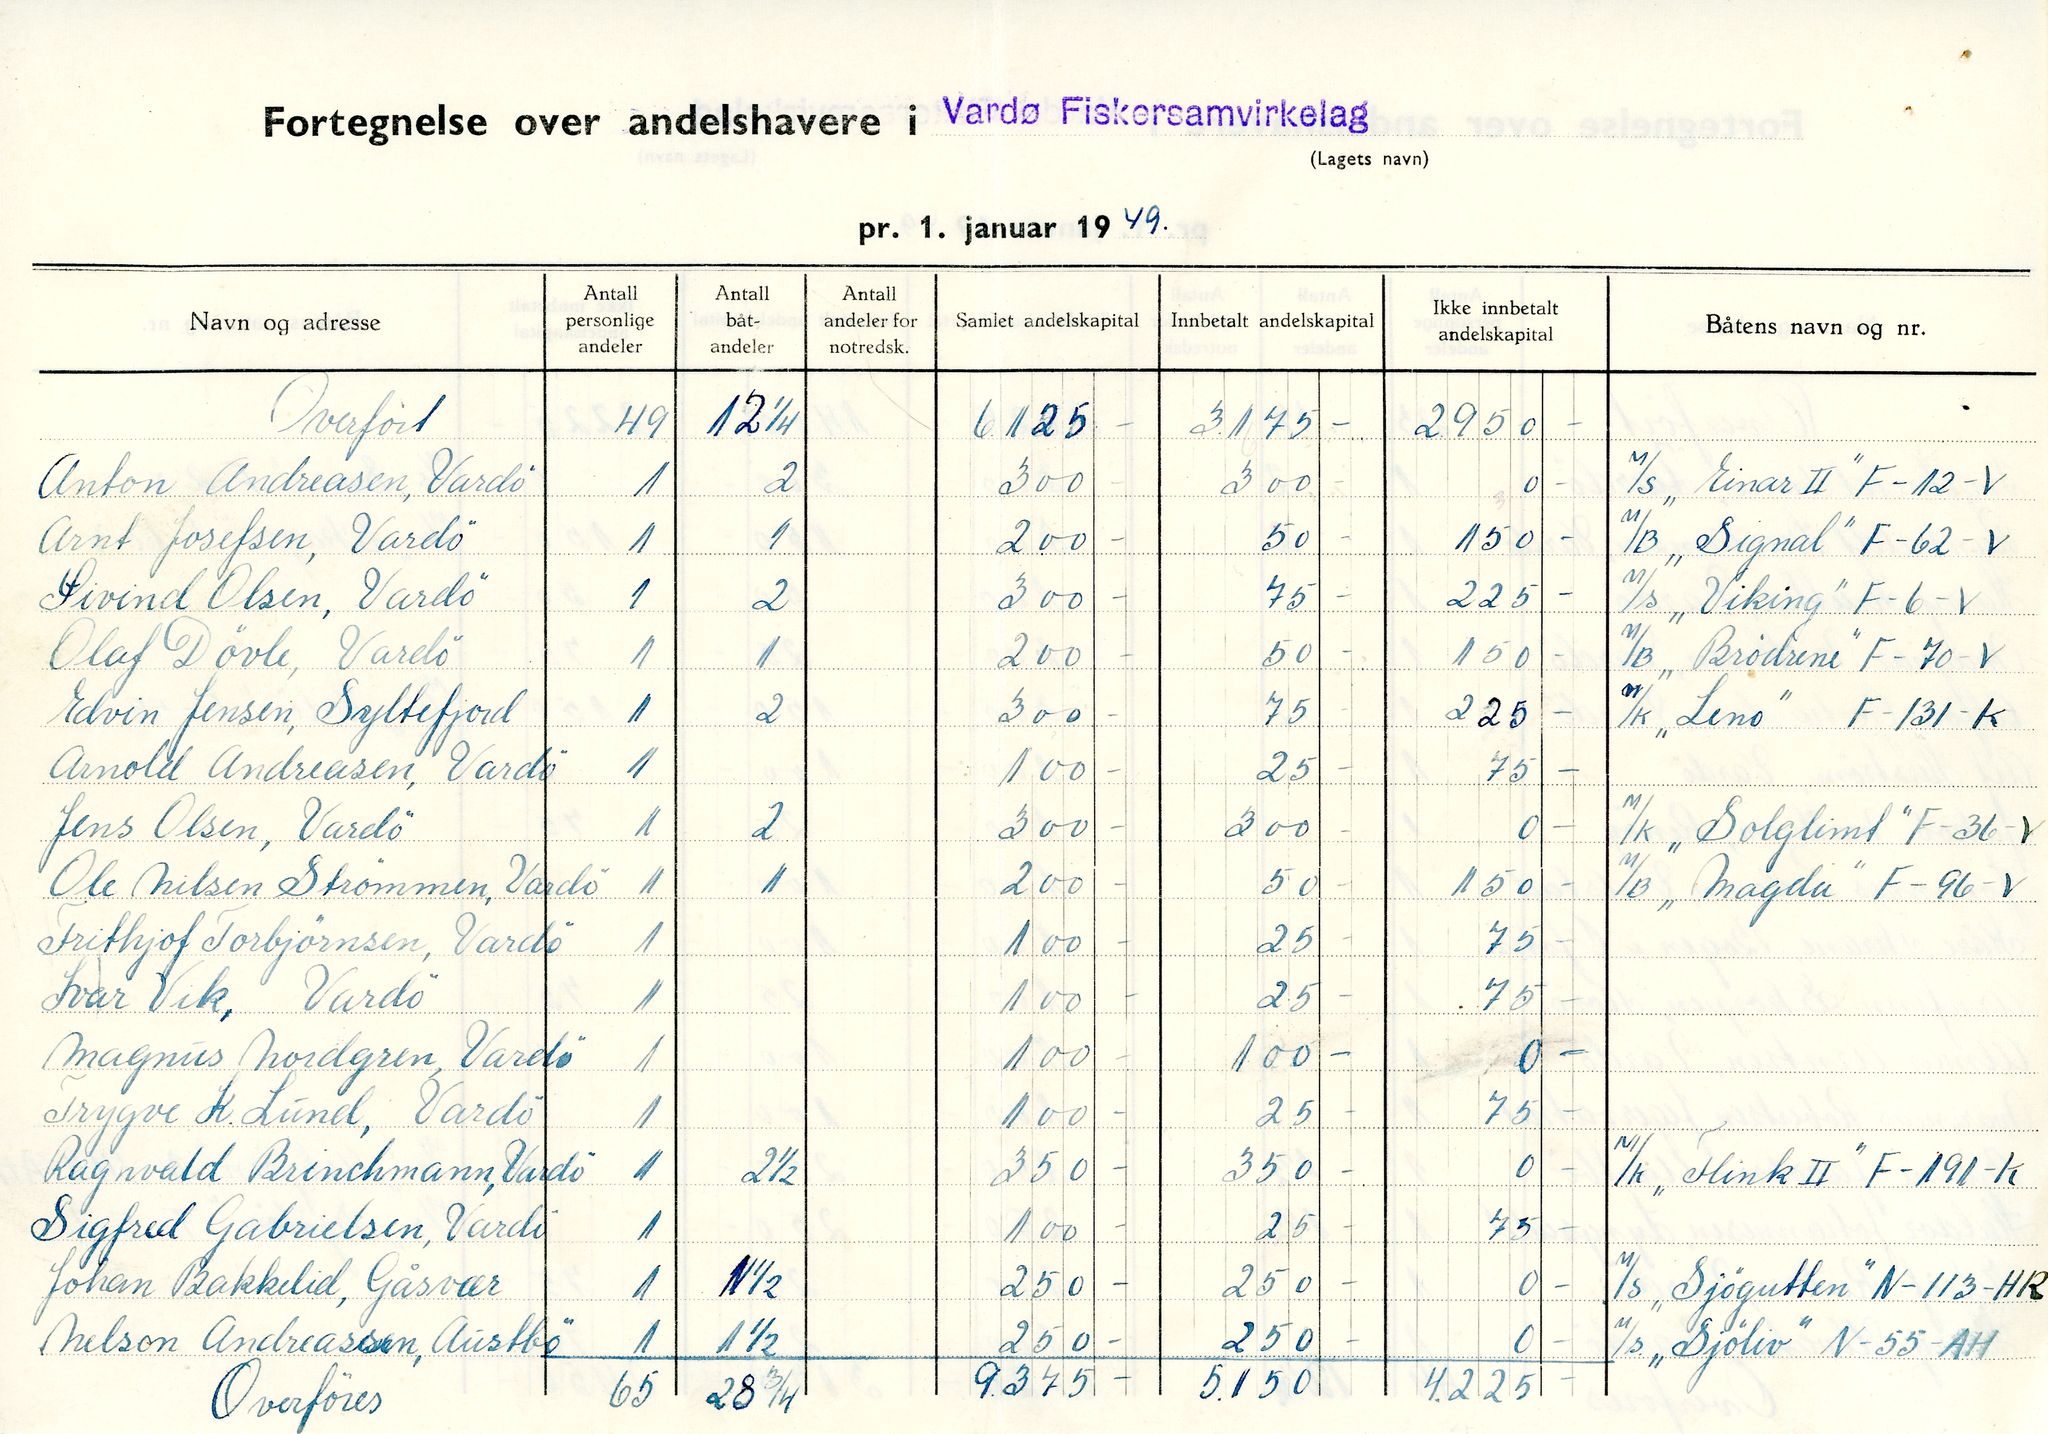 Fortegnelse over andelshavere i Vardø Fiskersamvirkelag
(Lagets navn)
pr. 1. januar 1949.
Navn og adresse Antall personlige andeler Antall båt-andeler Antall andeler for notredsk. Samlet andelskapital Innbetalt andelskapital Ikke innbetalt andelskapital Båtens navn og nr.
Overført 49 12 1/4 6125 - 3.175 - 2950 -
Anton Andreasen, Vardö 1 2 300 - 300 - 0 - M/S „Einar II" F-12-V
Arnt Josefsen, Vardö 1 1 200 - 50 - 150 - M/B „Signal" F-62-V
Eivind Olsen, Vardö 1 2 300 - 75 - 225 - M/S „Viking" F-6-V
Olaf Dövle, Vardö 1 1 200 - 50 - 150 - M/B „Brödrene" F-70-V
Edvin Jensen, Syltefjord 1 2 300 - 75 - 225 - M/K „Leno" F-131-K
Arnold Andreasen, Vardö 1 100 - 25 - 75 -
Jens Olsen, Vardö 1 2 300 - 300 - 0 - M/K „Solglimt" F-36-V
Ole Nilsen Strömmen, Vardö 1 1 200 - 50 - 150 - M/B „Magda" F-96-V
Frithjof Torbjörnsen, Vardö 1 100 - 25 - 75 -
Ivar Vik, Vardö 1 100 - 25 - 75 -
Magnus Nordgren, Vardö 1 100 - 100 - 0 -
Trygve K. Lund, Vardö 1 100 - 25 - 75 -
Ragnvald Brinchmann, Vardö 1 2 1/2 350 - 350 - 0 - M/K „Flink II" F-191-K
Sigfred Gabrielsen, Vardö 1 100 - 25 - 75 -
Johan Bakkelid, Gåsvær 1 1 1/2 250 - 250 - 0 - M/S „Sjögutten" N-113-HR
Nelson Andreassen, Austbö 1 1 1/2 250 - 250 - 0 - M/S. „Sjöliv" N-55-AH
Overföres 65 28 3/4 9.375 - 5.150 4.225 -